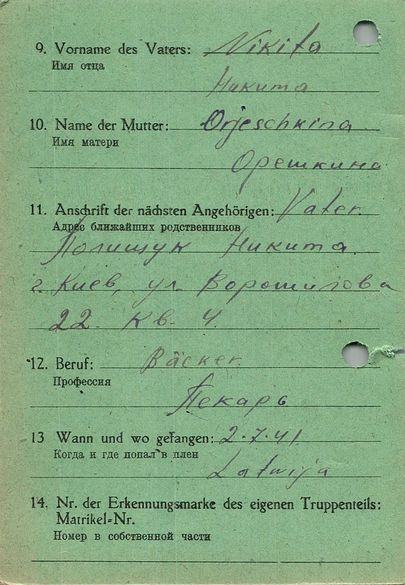 9. Vorname des Vaters: Nikita
Имя отца
Никита
10. Name der Mutter: Orjeschkina
Имя матери
Орешкина
11. Anschrift der nächsten Angehörigen: Vater.
Адрес ближайших родственников
Полищук Никита.
г. Киев, ул. Ворошилова
22 кв. 4.
12. Beruf: Bäcker.
Профессия
Пекарь
13 Wann und wo gefangen: 2.7.41.
Когда и где попал в плен
Latwija
14. Nr. der Erkennungsmarke des eigenen Truppenteils:
Matrikel=Nr.
Номер в собственной части